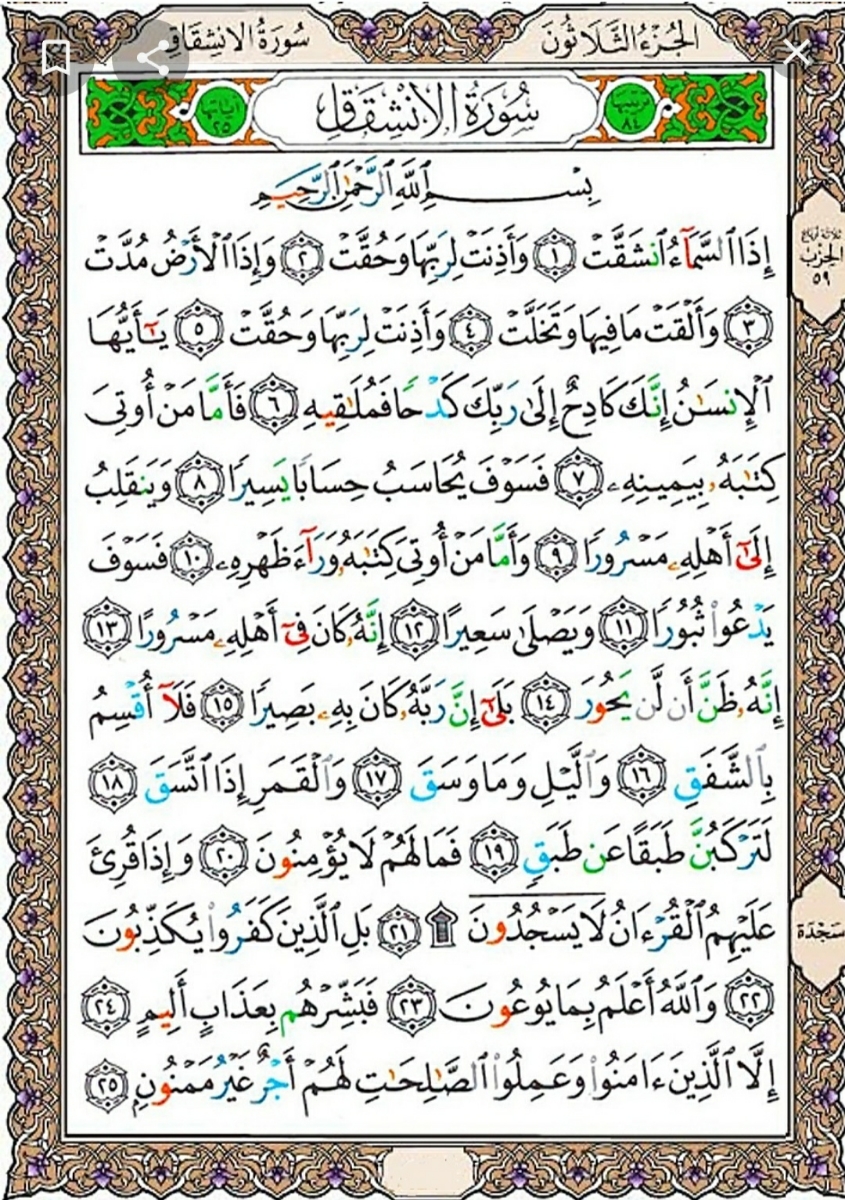 الجُزْءُ الثَّلَاثُونَ
سُورَةُ الانشِقَاق
ترتيبها ٨٤
سُورَةُ الِانْشِقَاقِ
آياتها ٢٥
بِسْمِ ٱللَّهِ ٱلرَّحْمَٰنِ ٱلرَّحِيمِ
إِذَا ٱلسَّمَآءُ ٱنشَقَّتْ ١ وَأَذِنَتْ لِرَبِّهَا وَحُقَّتْ ٢ وَإِذَا ٱلْأَرْضُ مُدَّتْ
٣ وَأَلْقَتْ مَا فِيهَا وَتَخَلَّتْ ٤ وَأَذِنَتْ لِرَبِّهَا وَحُقَّتْ ٥ يَٰٓأَيُّهَا
ٱلْإِنسَٰنُ إِنَّكَ كَادِحٌ إِلَىٰ رَبِّكَ كَدْحًا فَمُلَٰقِيهِ ٦ فَأَمَّا مَنْ أُوتِىَ
كِتَٰبَهُۥ بِيَمِينِهِۦ ٧ فَسَوْفَ يُحَاسَبُ حِسَابًا يَسِيرًا ٨ وَيَنقَلِبُ
إِلَىٰٓ أَهْلِهِۦ مَسْرُورًا ٩ وَأَمَّا مَنْ أُوتِىَ كِتَٰبَهُۥ وَرَآءَ ظَهْرِهِۦ ١٠ فَسَوْفَ
يَدْعُوا۟ ثُبُورًا ١١ وَيَصْلَىٰ سَعِيرًا ١٢ إِنَّهُۥ كَانَ فِىٓ أَهْلِهِۦ مَسْرُورًا ١٣
إِنَّهُۥ ظَنَّ أَن لَّن يَحُورَ ١٤ بَلَىٰٓ إِنَّ رَبَّهُۥ كَانَ بِهِۦ بَصِيرًا ١٥ فَلَآ أُقْسِمُ
بِٱلشَّفَقِ ١٦ وَٱلَّيْلِ وَمَا وَسَقَ ١٧ وَٱلْقَمَرِ إِذَا ٱتَّسَقَ ١٨
لَتَرْكَبُنَّ طَبَقًا عَن طَبَقٍ ١٩ فَمَا لَهُمْ لَا يُؤْمِنُونَ ٢٠ وَإِذَا قُرِئَ
عَلَيْهِمُ ٱلْقُرْءَانُ لَا يَسْجُدُونَ ۩ ٢١ بَلِ ٱلَّذِينَ كَفَرُوا۟ يُكَذِّبُونَ
٢٢ وَٱللَّهُ أَعْلَمُ بِمَا يُوعُونَ ٢٣ فَبَشِّرْهُم بِعَذَابٍ أَلِيمٍ ٢٤
إِلَّا ٱلَّذِينَ ءَامَنُوا۟ وَعَمِلُوا۟ ٱلصَّٰلِحَٰتِ لَهُمْ أَجْرٌ غَيْرُ مَمْنُونٍۭ ٢٥
ثلاثة أرباع
الحِزْب
٥٩
سَجْدَة